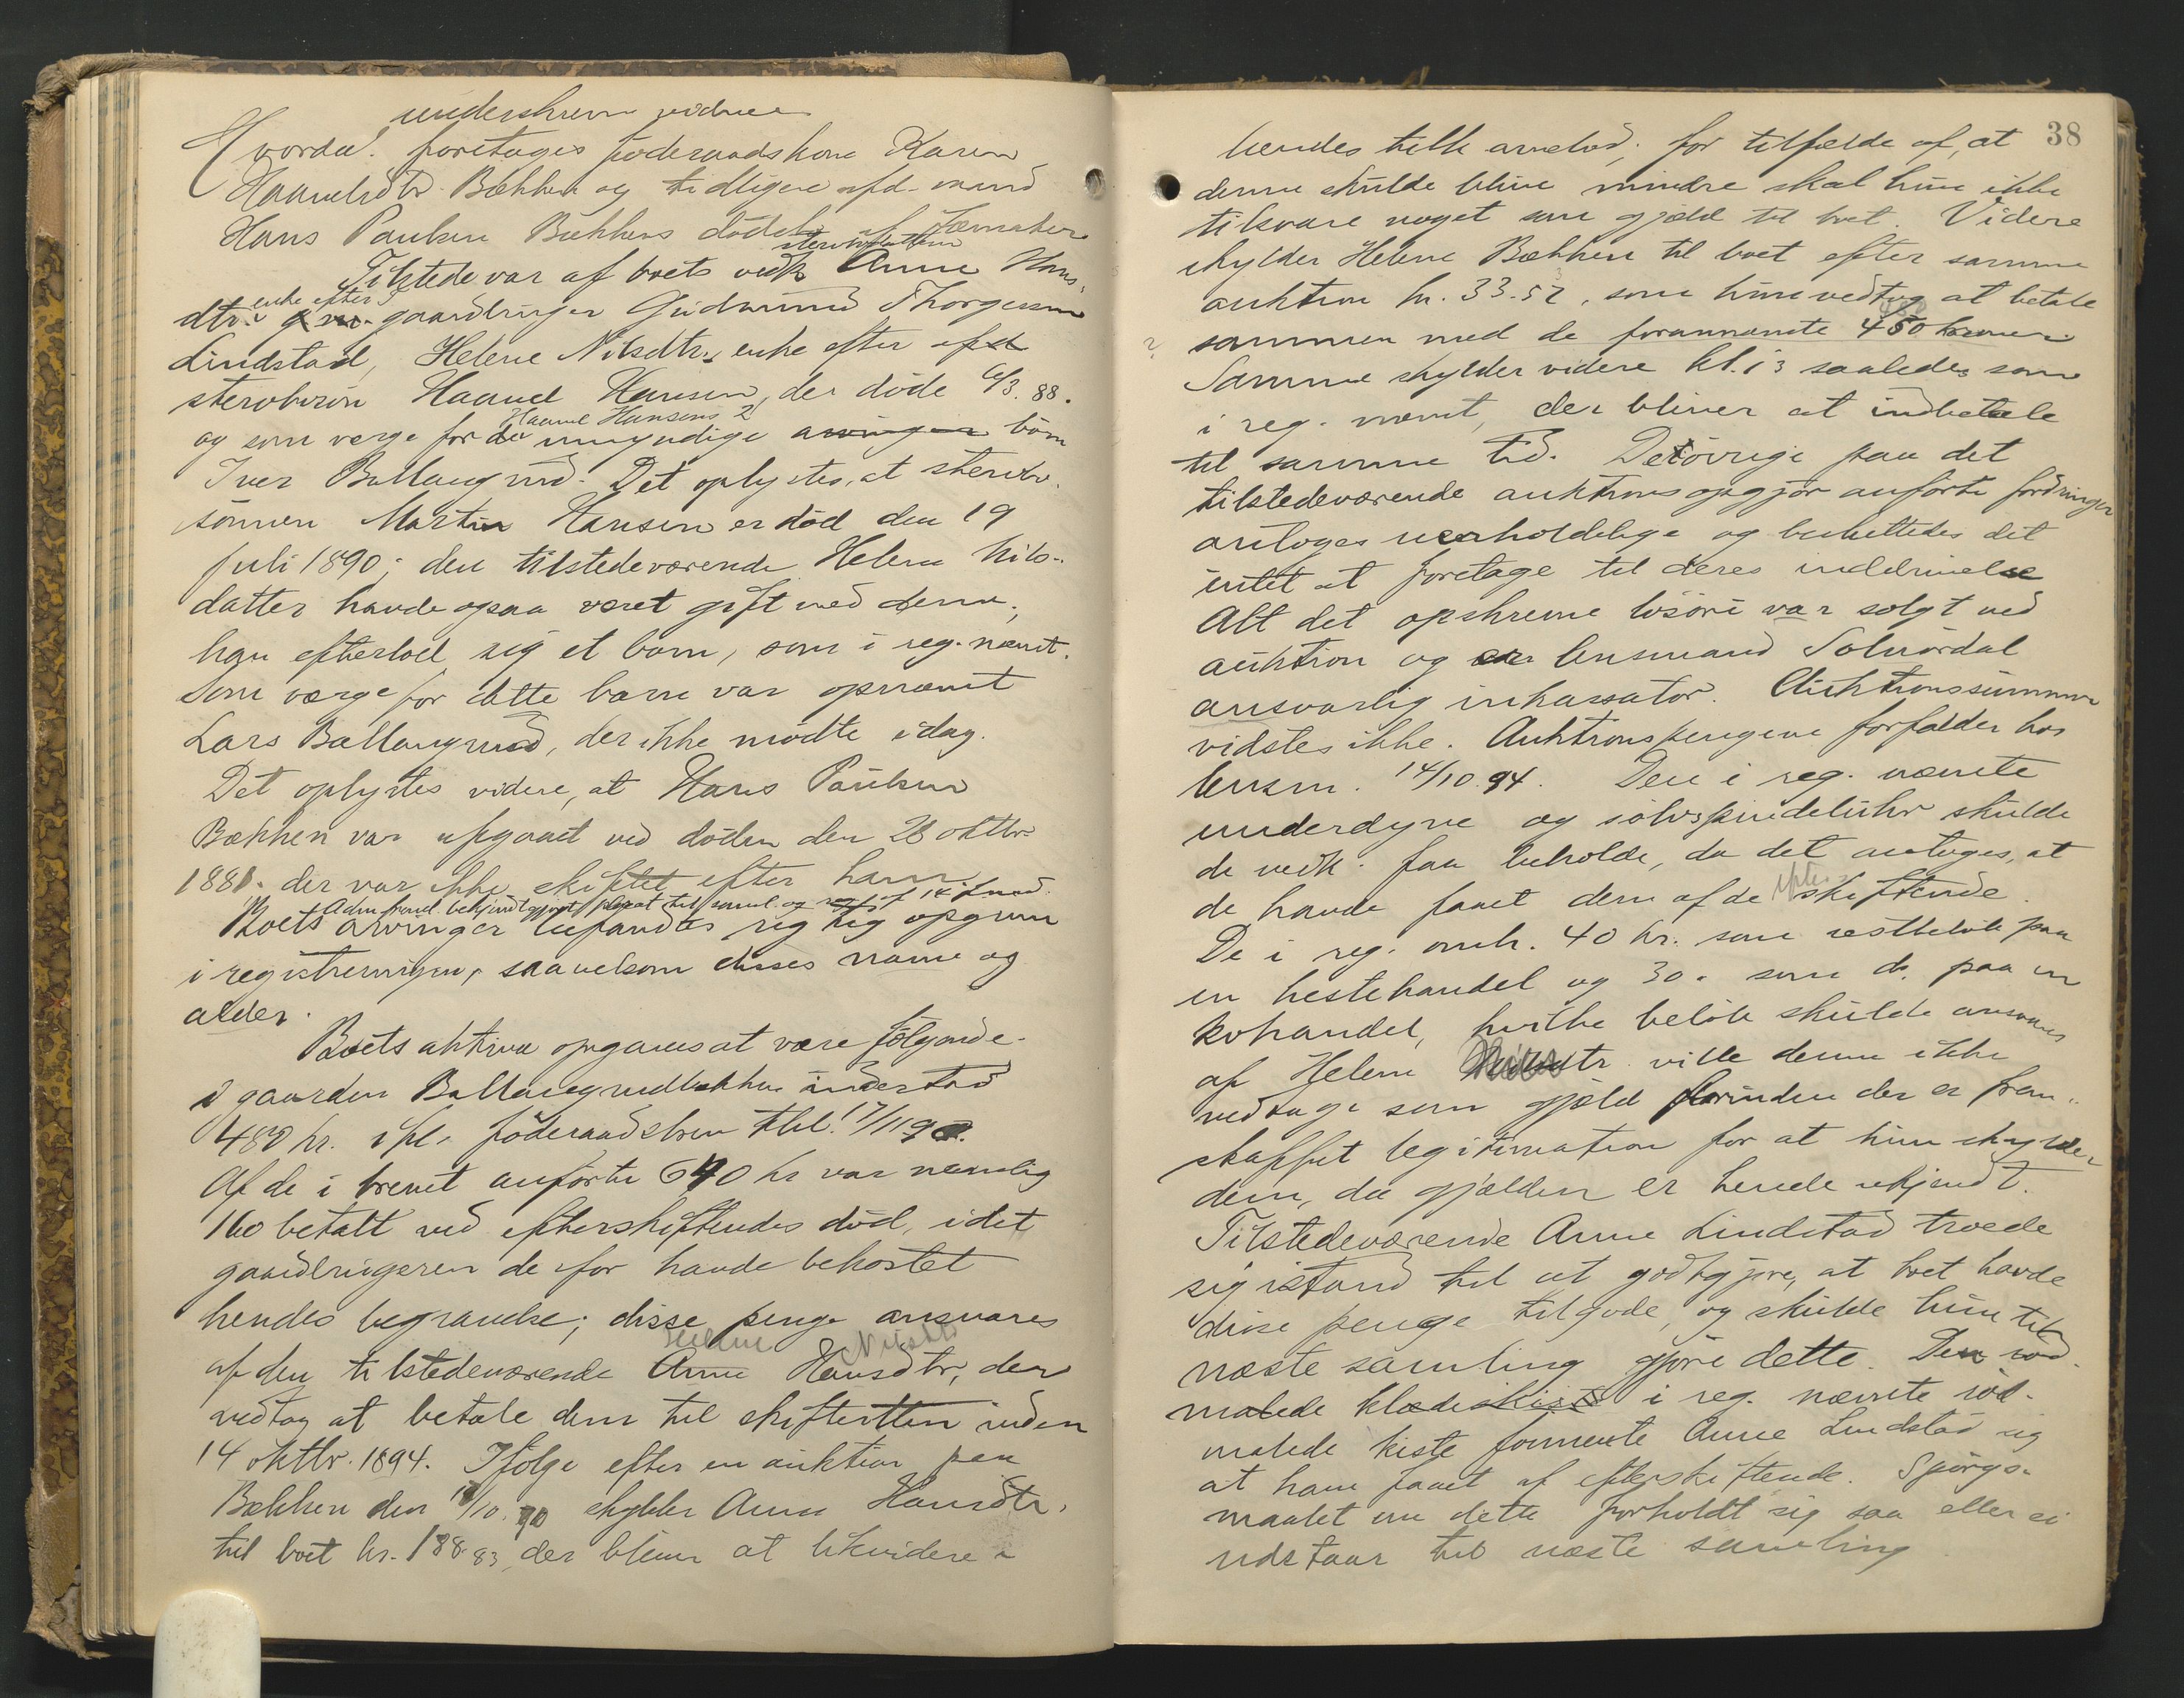 underskrevne vidner
Hvorda. foretages föderaadskone Karen
Haavelsdtr. Bækken og tidligere afd. mand
Hans Paulsen Bækkens dödsbo af Jevnaker
stervbodatteren
Tilstede var af boets vedk. Anne Hans-
enke efter
dtr. g.m. gaardbruger Gudmund Thorgersen
Lindstad, Helene Nilsdtr., enke efter afd
stervbosön Haavel Hansen, der döde 6/3. 88.
Haavel Hansens 2
og som verge for de umyndige arvinger börn
Iver Ballangrud. Det oplystes, at stervbo-
sönnen Martin Hansen er död den 19
juli 1890; den tilstedeværende Helene Nils-
datter havde ogsaa været gift med denne;
han efterlod sig et barn, som i reg. nævnt.
Som værge for dette barn var opnævnt
Lars Ballangrud, der ikke mödte idag.
Det oplystes videre, at Hans Paulsen
Bækken var afgaaet ved döden den 26 oktbr.
1881. der var ikke skiftet efter ham
Adm. freml. bekjendtgjort plakat til saml. og reg. af 14 f. md.
Boets arvinger befandtes rigtig opgivne
i registreringen, saavelsom disses navne og
alder.
Boets aktiva opgaves at være fölgende.
I gaarden Ballangrudbækken indestod
480 kr. ifl. föderaadsbrev thl. 17/11 90.
Af de i brevet anförte 640 kr var nemlig
160 betalt ved efterskiftendes död, idet
gaardbrugeren derfor havde bekostet
hendes begravelse; disse penge ansvares
Helene Nilsdtr
af den tilstedeværende Anne Hansdtr, der
vedtog at betale dem til skifteretten inden
14 oktbr. 1894. Ifölge efter en auktion paa
Bækken den 18/10. 90 skylder Anne Hansdtr.
til boet kr. 188.83, der bliver at likvidere i
38
hendes tilk. arvelod; for tilfælde af, at
denne skulde blive mindre skal hun ikke
tilsvare noget som gjæld til boet. Videre
skylder Helene Bækken til boet efter samme
auktion kr. 33.52, som hun vedtog at betale
480
sammen med de forannævnte 450 kroner
Samme skylder videre kl. 13 saaledes som
i reg. nævnt, der bliver at indbetale
til samme tid. Detövrige paa det
tilstedeværende auktionsopgjör anförte fordringer
antoges uerholdelige og besluttedes det
intet at foretage til deres inddrivelse
Alt det opskrevne lösöre var solgt ved
auktion og er lensmand Solnördal
ansvarlig inkassator. Auktionssummen
vidstes ikke. Auktionspengene forfalder hos
lensm. 14/10.94. Den i reg. nævnte
underdyne og sölvspindeluhr skulde
de vedk. faa beholde, da det antoges, at
efter
de havde faaet dem af de skiftende.
De i reg. omh. 40 kr. som restbelöb paa
en hestehandel og 30. som do. paa en
kohandel, hvilke belöb skulde ansvares
af Helene Nilsdtr. ville denne ikke
vedtage som gjæld forinden der er frem-
skaffet legitimation for at hun skylder
dem, da gjælden er hende ukjendt.
Tilstedeværende Anne Lindstad troede
sig istand til at godtgjøre, at boet havde
disse penge tilgode, og skulde hun til
næste samling gjöre dette. Den röd-
malede klædeskiste i reg. nævnte röd-
malede kiste formente Anne Lindstad sig
at have faaet af efterskiftende. Spörgs-
maalet om dette forholdt sig saa eller ei
udstaar til næste samling